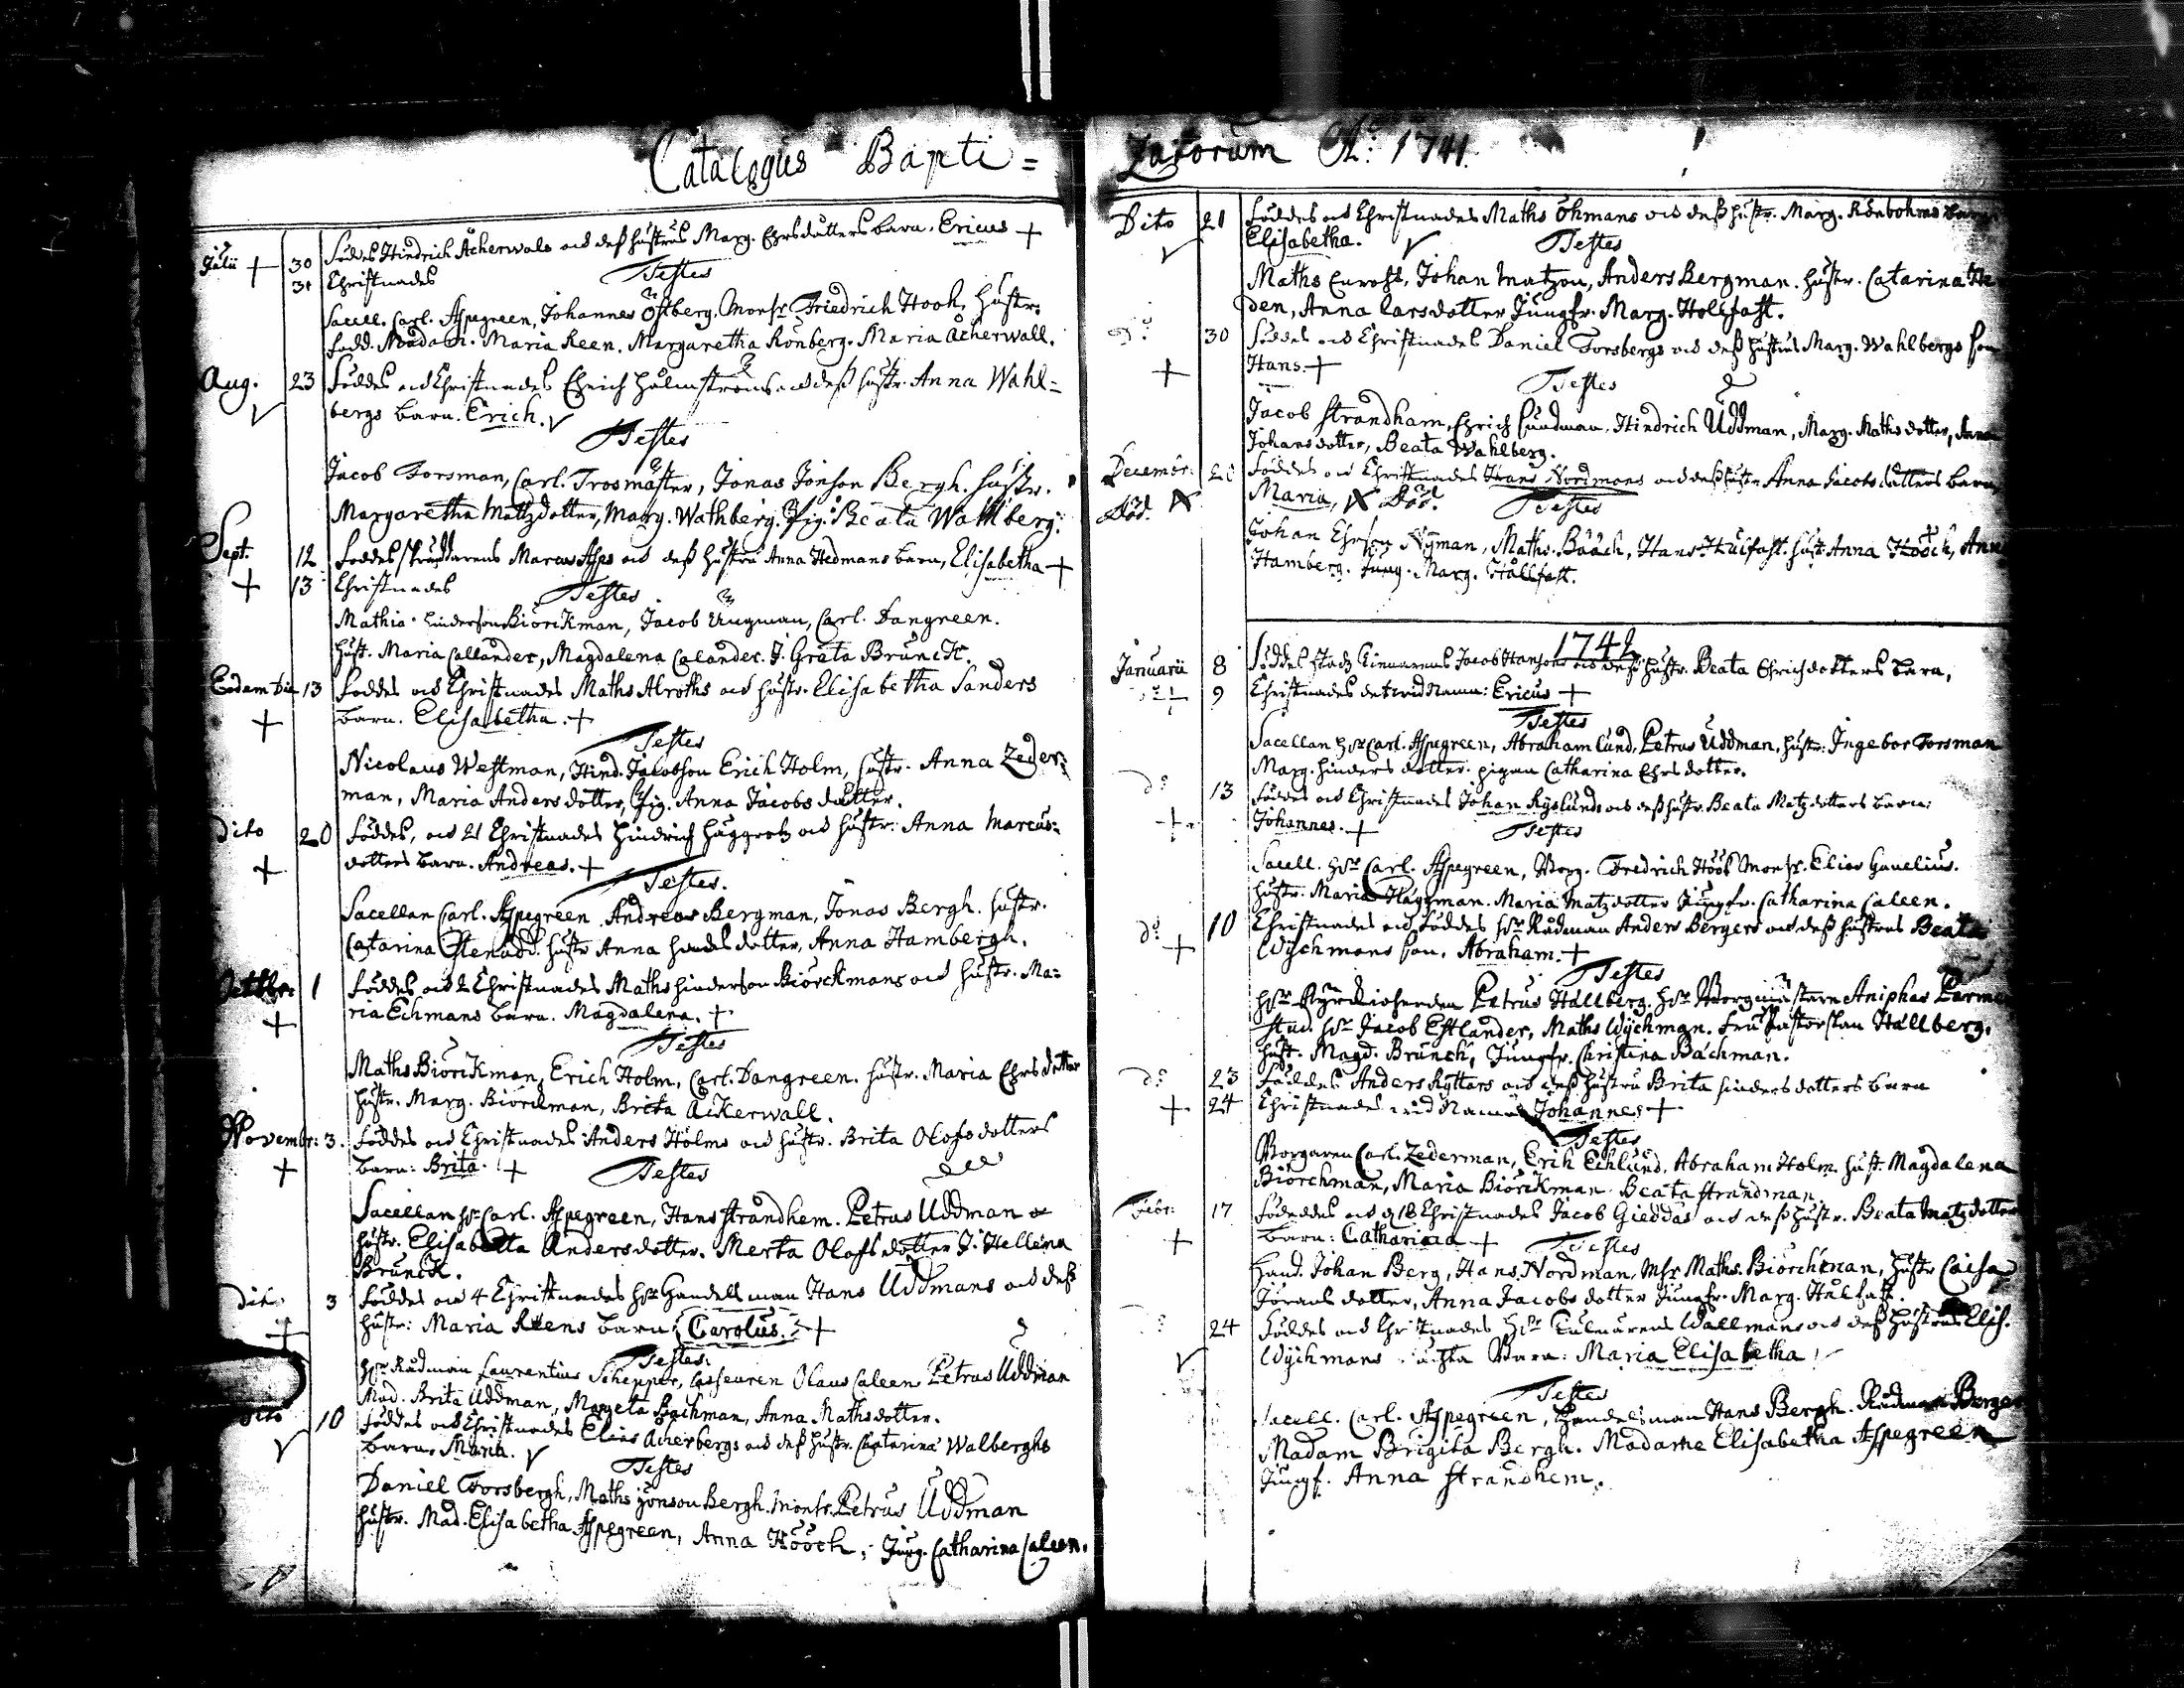 Catalogus Bapti=
Julii + 30 Föddes Hindrich Åcherwals och deß hustrus Marg. Ehrsdotters barn. Ericus +
31 Christnades Testes
Sacell. Carl. Aspegreen, Johannes Östberg, Monsr Friedrich Hook, Hustr.
Madam. Maria Reen. Margaretha Rönberg. Maria Åcherwall.
Aug. 23 Föddes och Christnades Ehrich Holmströms och deß hustr. Anna Wahl=
bergs barn. Erich.
Testes
Jacob Forsman, Carl. Trosmäster, Jonas Jönson Bergh. hustr.
Margaretha Mattzdotter, Marg. Wathberg. Pig. Beata Wahlberg.
Sept. 12 Föddes Marcus Asps och deß hustru Anna Hedmans barn, Elisabetha +
+ 13 Christnades Testes
Mathia Hinderson Biörckman, Jacob Ungman, Carl. Dangreen.
Hust. Maria Callander, Magdalena Calander. J. Greta Brunck.
Eodem Die 13 Föddes och Christnades Maths Alroths och hustr. Elisabetha Sanders
+ barn. Elisabetha. +
Testes
Nicolaus Westman, Hind. Jacobson Erich Holm, hustr. Anna Zeder=
man, Maria Anders dotter, Pig. Anna Jacobs dotter.
Dito 20 Föddes, och 21 Christnades Hindrich Häggrotz och hustr. Anna Marcus=
+ dotters barn. Andreas. +
Testes.
Sacellan Carl. Aspegreen Andreas Bergman, Jonas Bergh. hustr.
Catarina hustr Anna dotter, Anna Hambergh.
Octobr. 1 Föddes och 2 Christnades Maths Hinderson Biörckmans och hustr. Ma=
+ ria Echmans barn. Magdalena. +
Testes
Maths Biörckman, Erich Holm, Carl. Dangreen. hustr. Maria Ehrs dotter
hustr. Marg. Biörckman, Brita Ackerwall.
Novembr: 3. Föddes och Christnades Anders Holms och hustr. Brita Olofsdotters
+ barn: Brita. + Testes
Sacellan Hr Carl. Aspegreen, Hans Strandhem. Petrus Uddman
hustr. Elisabetta Andersdotter. Merta Olofsdotter J. Hellena
Brunck.
Dito 3 Föddes och 4 Christnades Hr Handelsman Hans Uddmans och deß
+ hustr: Maria Reens barn: Carolus. +
Testes:
Hr Rådman Laurentius Schepper, Casseuren Olaus Caleen Petrus Uddman
Mad. Brita Uddman, Margeta Bachman, Anna Mathsdotter.
Dito 10 Föddes och Christnades Elias Åcherbergs och deß hustr. Chatarina Walberghs
barn. Maria.
Testes
Daniel Forsbergh, Maths Jönson Bergh. Monsr. Petrus Uddman
hustr. Mad. Elisabetha Aspegreen, Anna Hööck, Jung. Catharina Caleen.
zatorum A: 1741.
Dito 21 Föddes och Christnades Maths Öhmans och deß hustr. Marg. Rönbohms barn
Elisabetha. Testes
Maths Johan Matzon, Anders Bergman. hustr. Catarina
den, Anna Larsdotter Jungfr. Marg. Hollfast.
Do 30 Föddes och Christnades Daniel Forsbergs och deß hustrus Marg. Wahlbergs son
+ Hans. +
Testes
Jacob Strandham, Ehrich Sundman, Hindrich Uddman, Marg. Maths dotter, Anna
Johansdotter, Beata Wahlberg.
Decembr. 20 Föddes och Christnades Hans Nordmans och deß hustr. Anna Jacobs dotters barn
Död. Maria, Död. Testes
Johan Ehrson Nyman, Maths. Bååch, Hans Hulfast. hust. Anna Hööck, Ann
Hamberg. Jung. Marg. Hållfast.
1742
Januarii 8 Föddes Jacob Hansons och deß hustr. Beata Ehrichdotters barn,
+ 9 Christnades Namn: Ericus +
Testes
Sacellan Hr Carl. Aspegreen, Abraham Lund, Petrus Uddman, hustr. Ingebor Forsman
Marg. Hinders dotter. pigan Catharina Ehrs dotter.
do 13 Föddes och Christnades Johan Ryslunds och deß hustr. Beata Matzdotters barn:
+ Johannes. + Testes
Sacell. Hr Carl. Aspegreen, Borg. Fredrich Höök Monsr. Elias Ganelius.
hustr. Maria Häggman. Maria Matzdotter Jungfr. Catharina Caleen.
do 10 Christnades och Föddes Hr Rådman Anders Bergers och deß hustrus Beata
+ Wychmans son, Abraham. +
Testes
Hr Kyrckioherden Petrus Hallberg. Hr Borgmästaren Aniphas
stud. Hr Jacob Estlander, Maths Wychman. fru Pastorskan Hallberg.
Hust. Magd. Brunck, Jungfr. Christina Bachman.
do 23 Föddes Anders Ryttars och deß hustru Brita Hinders dotters barn
+ 24 Christnades wid Namn Johannes +
Testes
Borgaren Carl. Zederman, Erih Echlund, Abraham Holm hust. Magdalena
Biörchman, Maria Biörckman Beata Strandman.
Febr. 17 Föddes och 18 Christnades Jacob Gieddas och deß hustr. Beata Matzdotter
+ barn: Catharina + Testes
Hand. Johan Berg, Hans Nordman, Msr Maths. Biörchman, hustr Caisa
Jörans dotter, Anna Jacobs dotter Jungfr. Marg. Hålfast.
24 Föddes och Christnades Hr Wallmans och deß hustrus Elis.
Wychmans ächta Barn: Maria Elisabetha
Testes
Sacell. Carl. Aspegreen, Handelsman Hans Bergh. Rådman Berger
Madam Brigita Bergh. Madame Elisabetha Aspegreen
Jungf. Anna Strandhem.